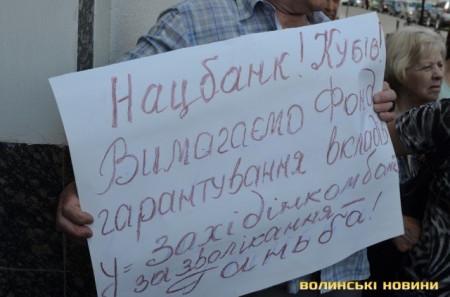 Нацбанк! Кубів!
Вимагаємо Фонд
гарантування вкладів
у Західінкомбанк
за зволікання
Ганьба!
ВОЛИНСЬКІ НОВИНИ